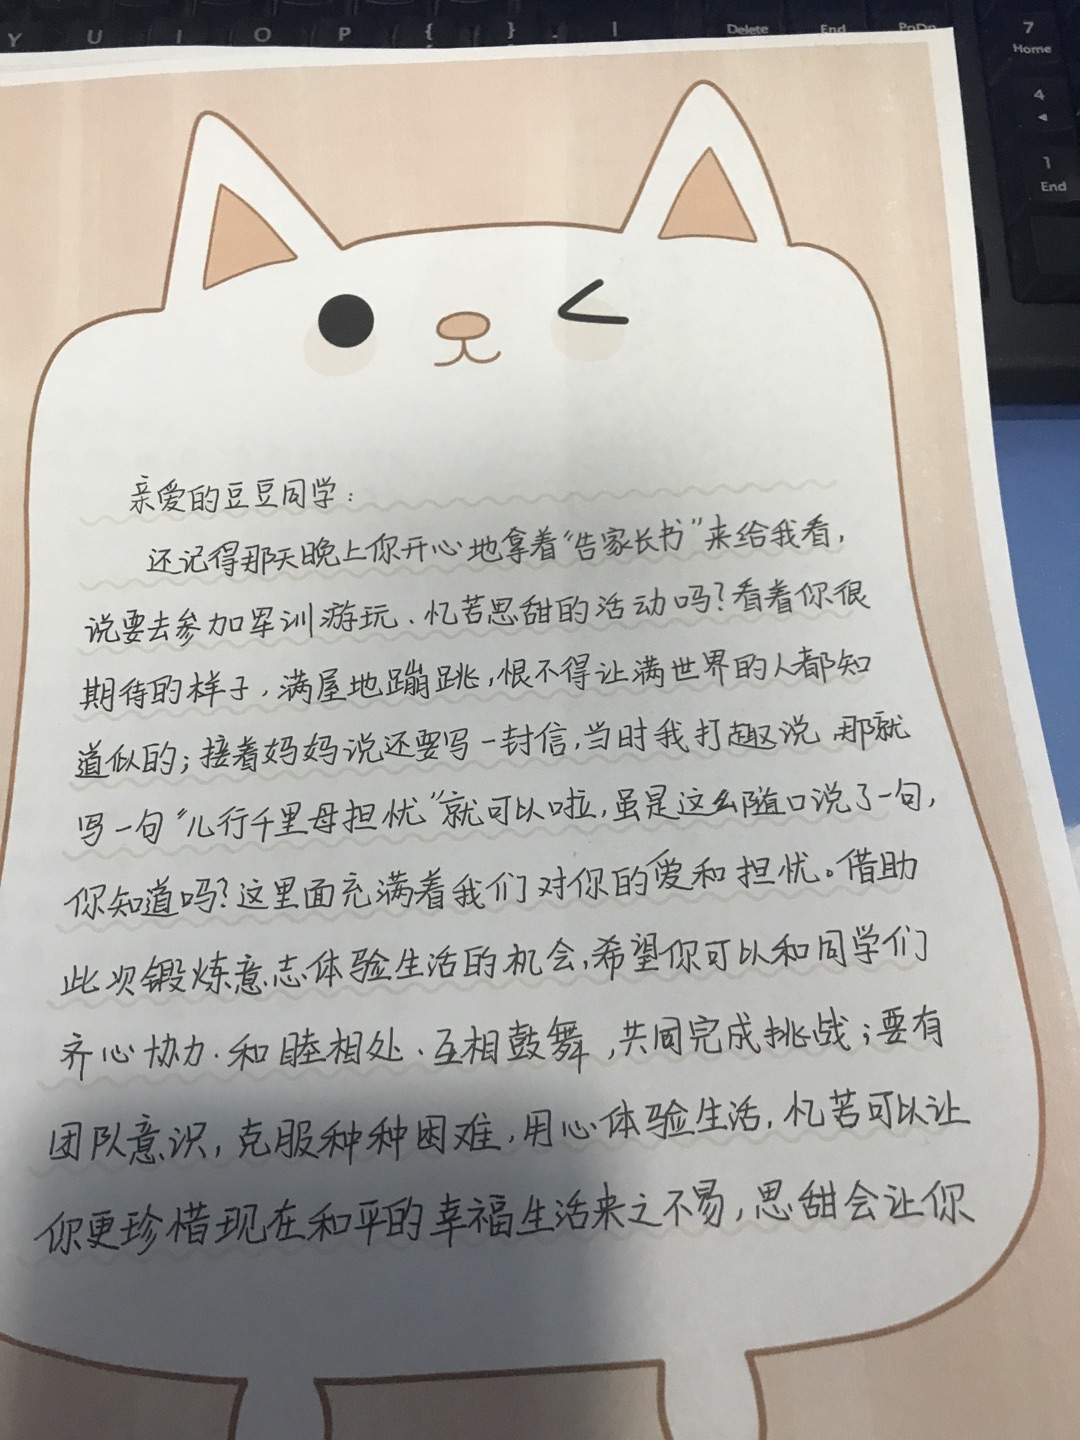 Y U I O P { } | Delete End PgDn 7
Home
4
1
End
亲爱的豆豆同学：
还记得那天晚上你开心地拿着“告家长书”来给我看，
说要去参加军训游玩、忆苦思甜的活动吗？看着你很
期待的样子，满屋地蹦跳，恨不得让满世界的人都知
道似的；接着妈妈说还要写一封信，当时我打趣说，那就
写一句“儿行千里母担忧”就可以啦，虽是这么随口说了一句，
你知道吗？这里面充满着我们对你的爱和担忧。借助
此次锻炼意志体验生活的机会，希望你可以和同学们
齐心协力、和睦相处、互相鼓舞，共同完成挑战；要有
团队意识，克服种种困难，用心体验生活，忆苦可以让
你更珍惜现在和平的幸福生活来之不易，思甜会让你